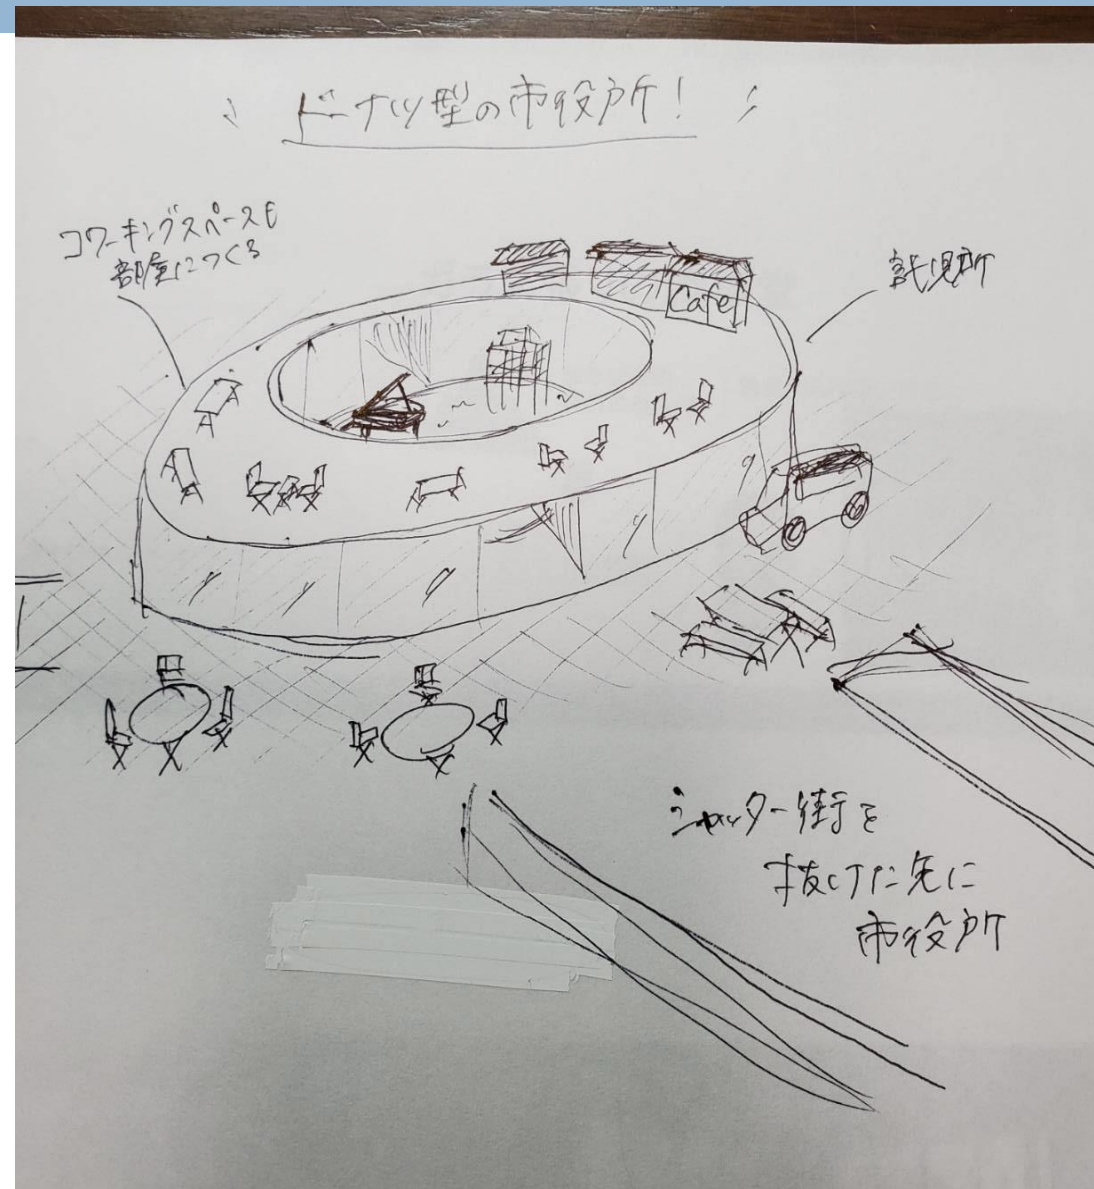 ドーナツ型の市役所!
コワーキングスペースも
部屋につくる
託児所
Cafe
シャッター街を
抜けた先に
市役所